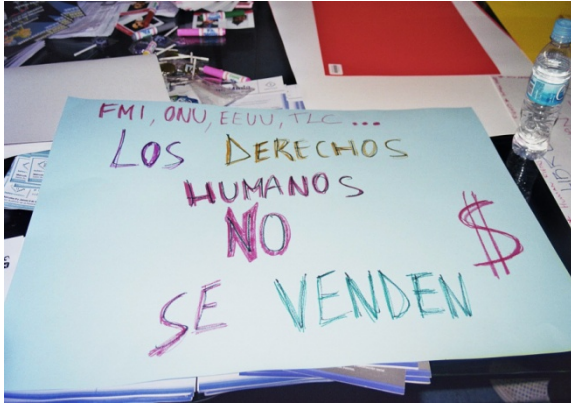 FMI, ONU, EEUU, TLC...
LOS DERECHOS
HUMANOS
NO
$
SE VENDEN